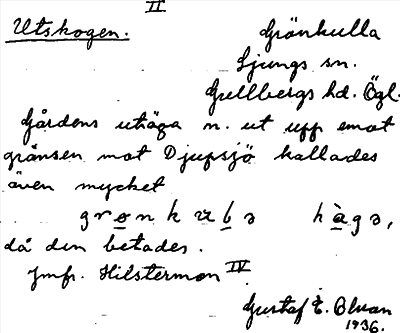 II
Utskogen.
Grönkulla
Ljungs sn.
Gullbergs hd. Ögl.
Gårdens utäga n. ut upp emot
gränsen mot Djupsjö kallades
även mycket
hàgə,
då den betades.
Jmfr. Hilstermon IV
Gustaf E.
1936.